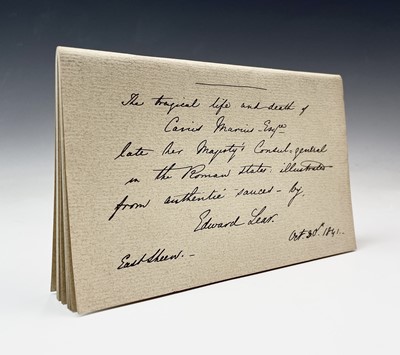 The tragical life and death of
Caius Marius - Esqre
late her Majesty's Consul-general
in the Roman states: illustrated
from authentic sauces - by,
Edward Lear.
Oct. 30. 1841.
East Sheen. -